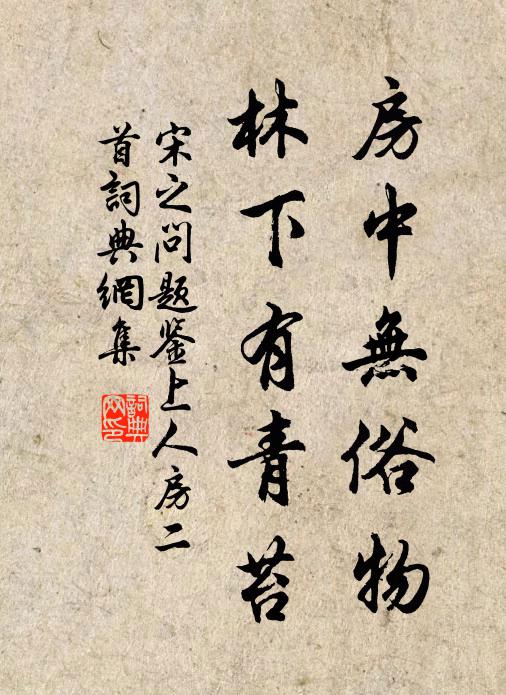 房中無俗物
林下有青苔
宋之问题鉴上人房二
首詞典網集
詞典网印